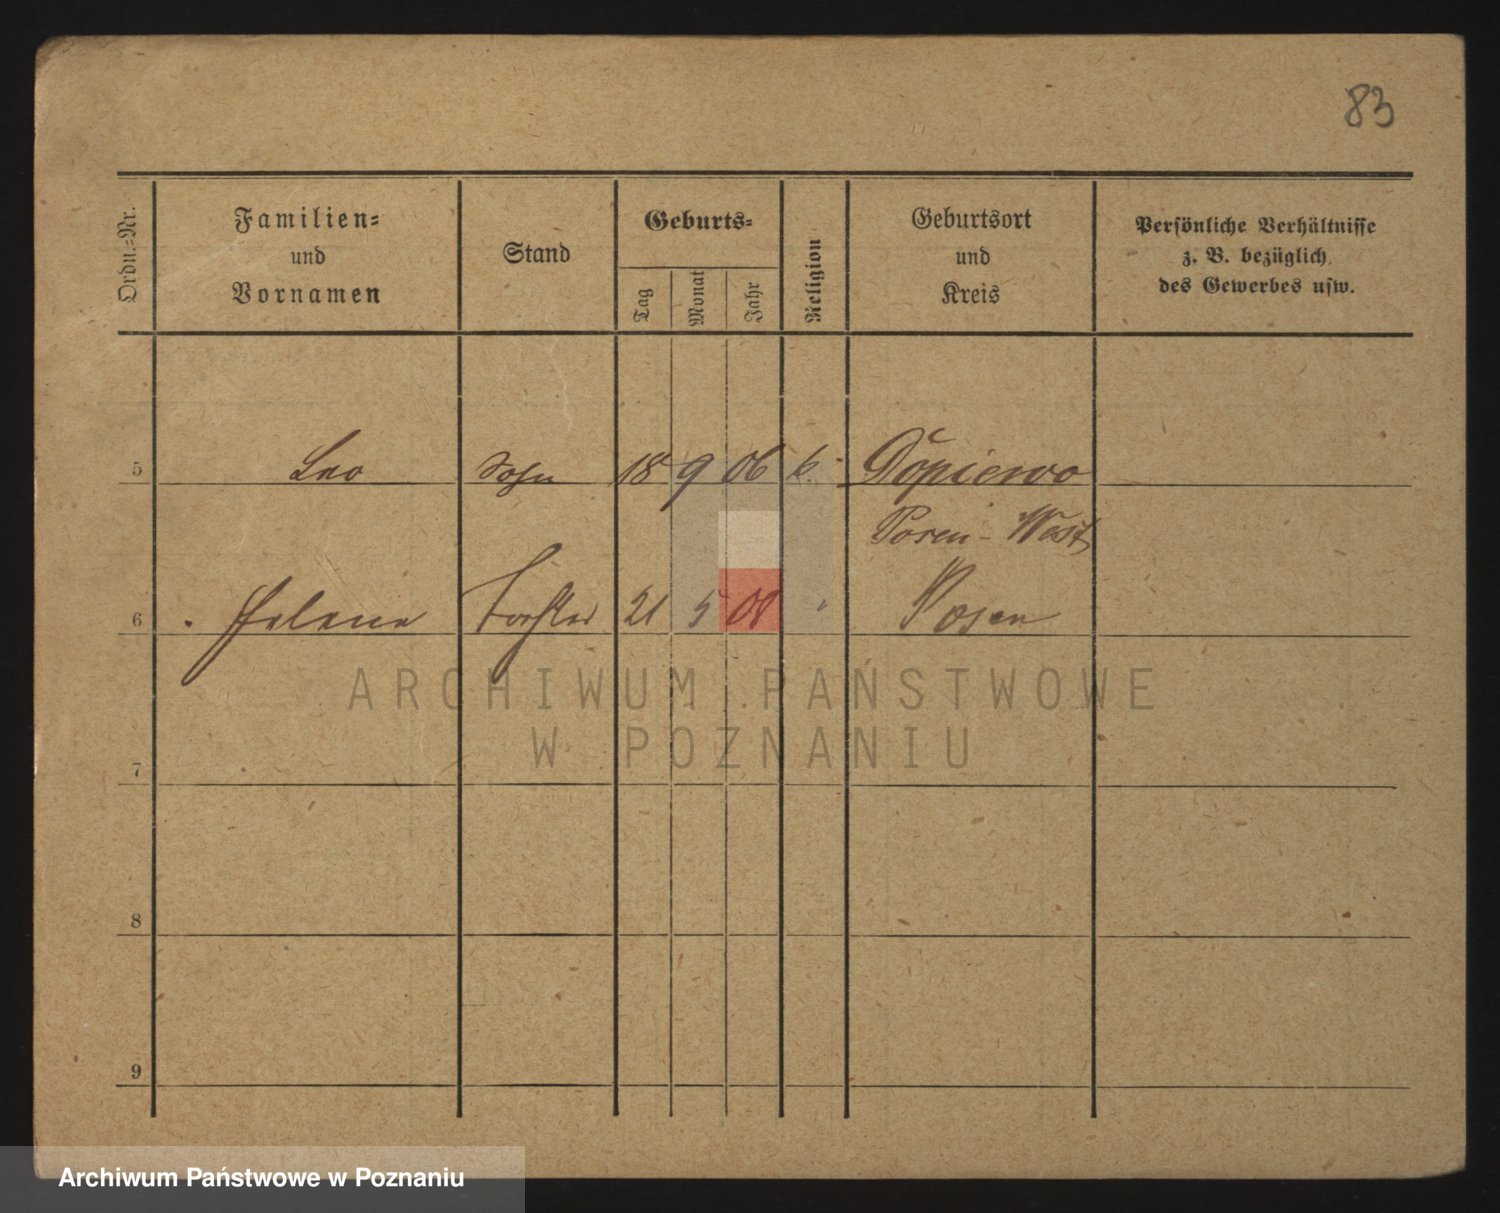 83
Ordn.=Nr.
Familien=
und
Vornamen
Stand
Geburts=
Tag
Monat
Jahr
Religion
Geburtsort
und
Kreis
Persönliche Verhältnisse
z. B. bezüglich
des Gewerbes usw.
5 Leo Sohn 18 9 06 k. Dopiewo
Posen-West
6 Helene Tochter 21 5 08 " Posen
ARCHIWUM PAŃSTWOWE
W POZNANIU
7
8
9
Archiwum Państwowe w Poznaniu